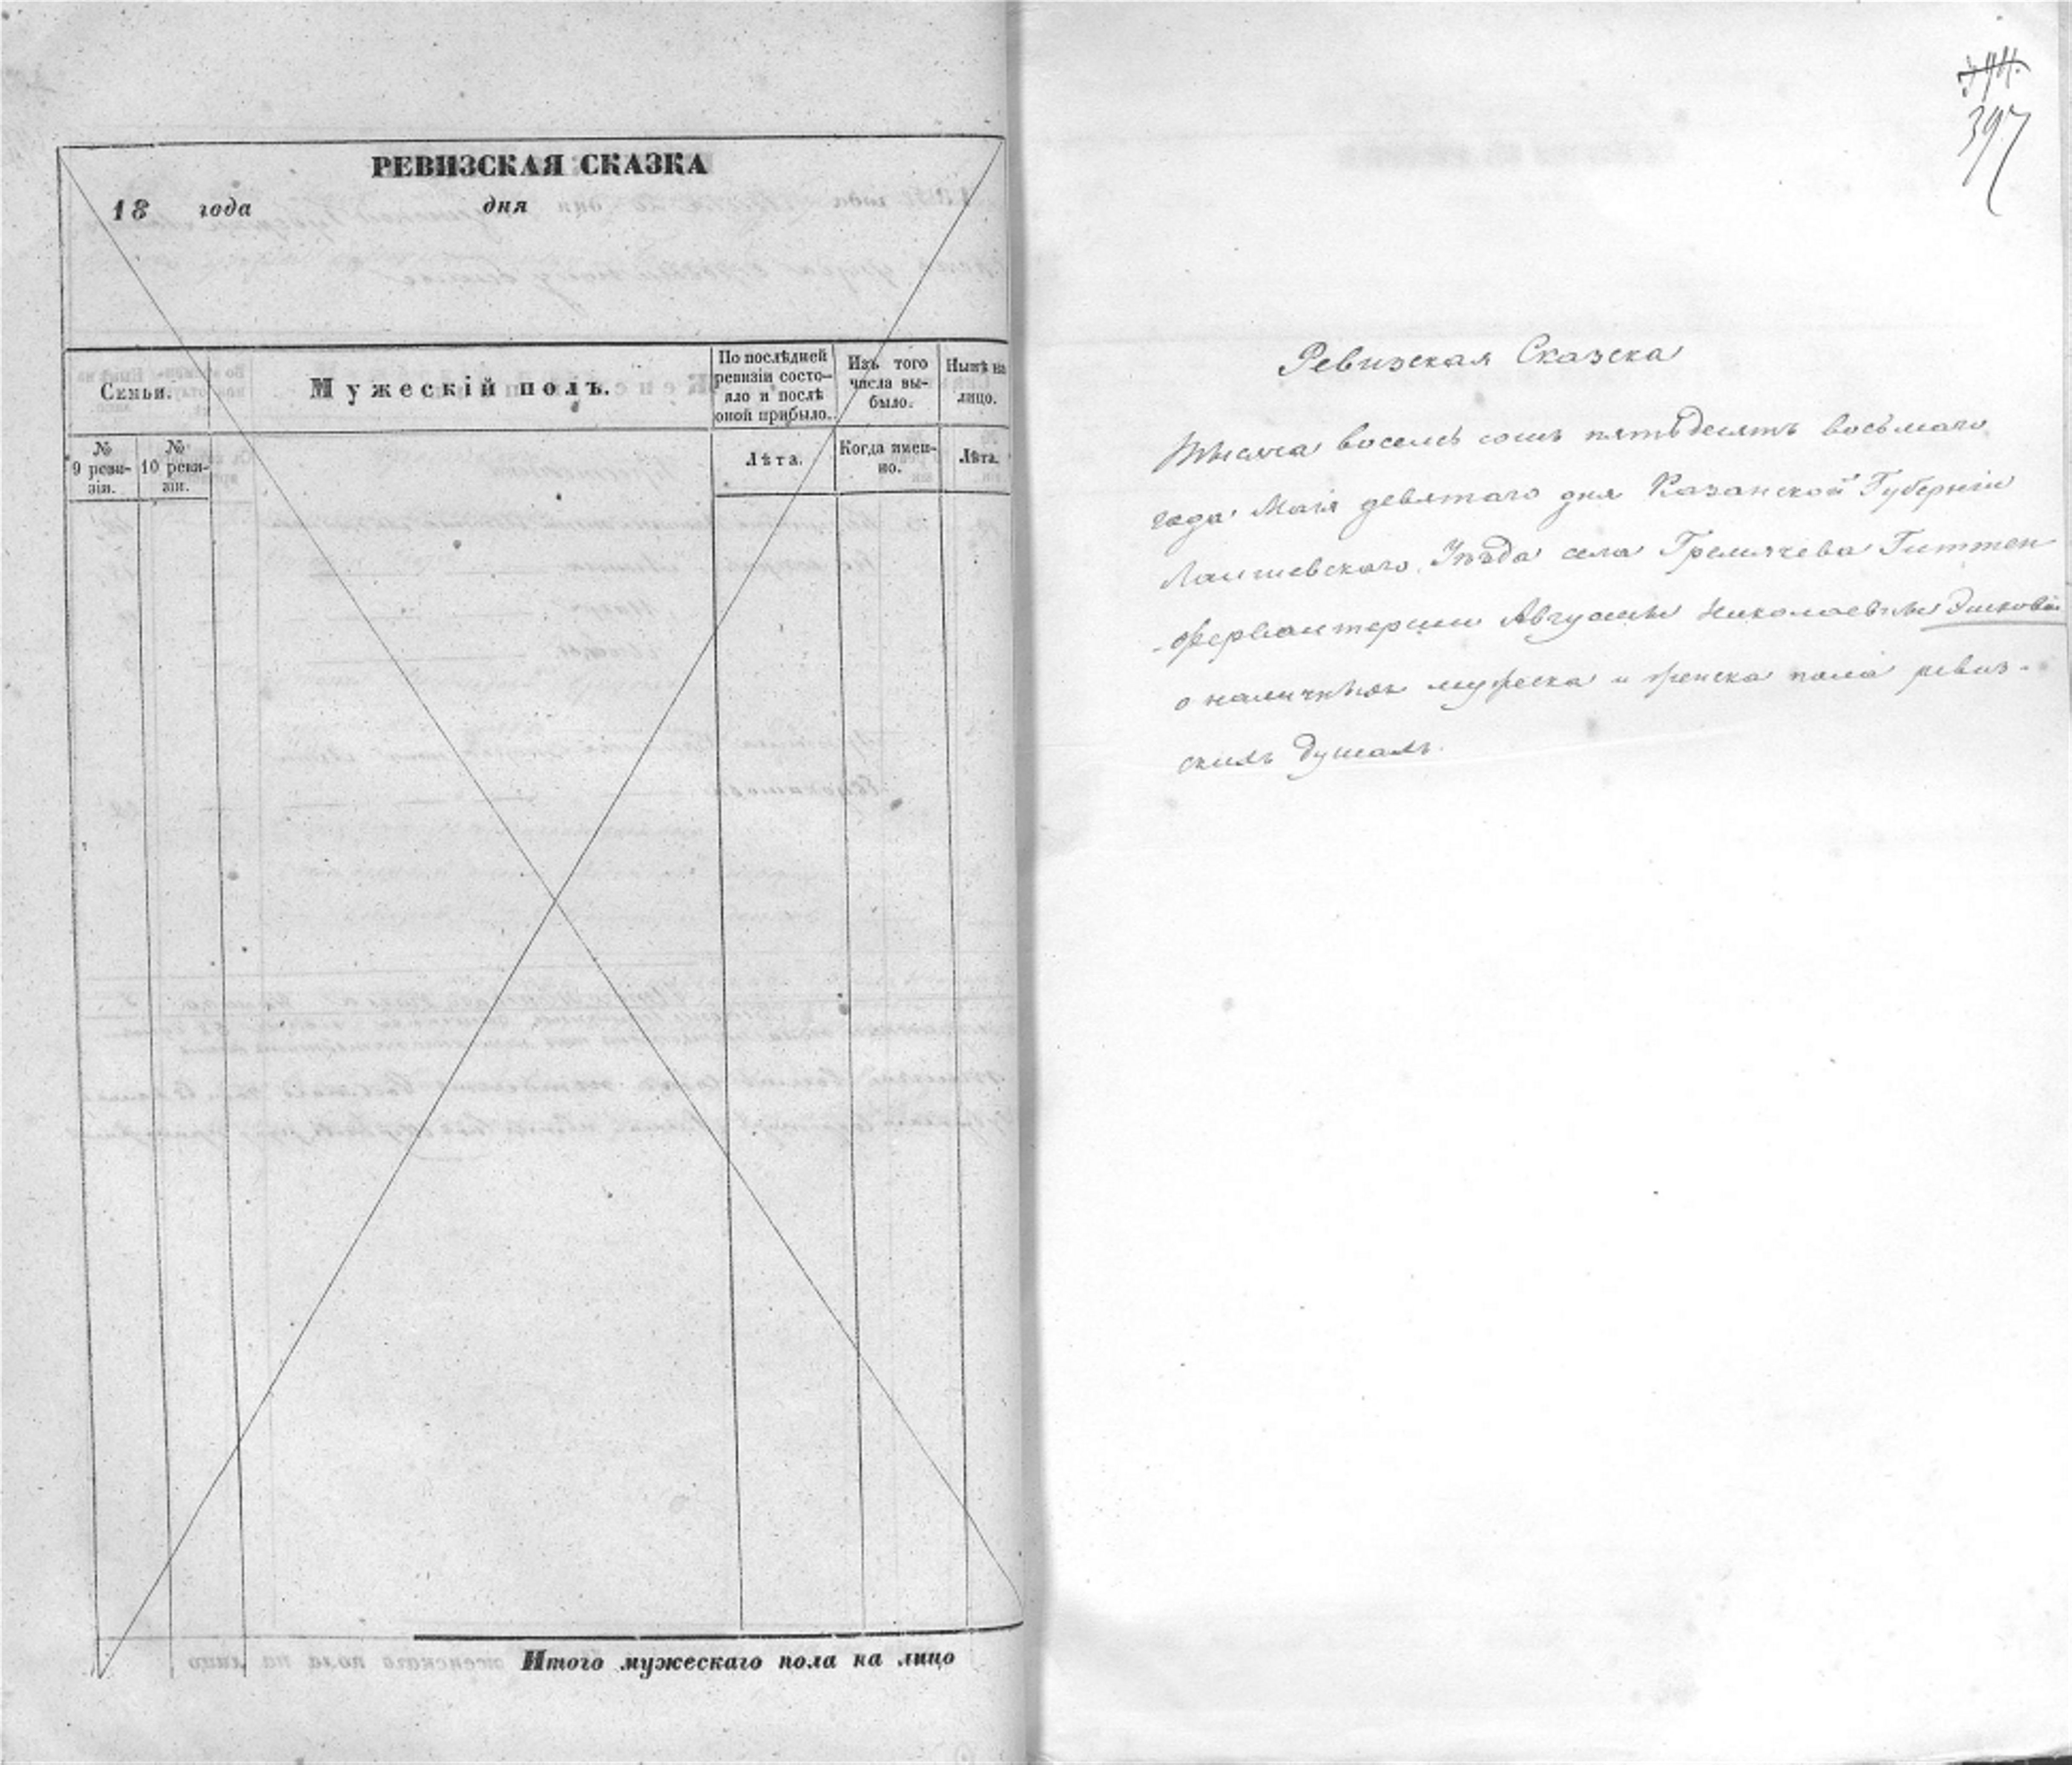 РЕВИЗСКАЯ СКАЗКА
18 года дня
Семьи.
№ 9 реви-
зіи.
№ 10 реви-
зіи.
Мужескій полъ.
По послѣдней
ревизіи состо-
яло и послѣ
оной прибыло.
Лѣта.
Изъ того
числа вы-
было.
Когда имен-
но.
Нынѣ на
лицо.
Лѣта.
Итого мужескаго пола на лицо
394.
397
Ревизская Сказска
Тысяча восемь сотъ пятьдесятъ восьмаго
года Маія девятаго дня Казанской Губерніи
Лаишевскаго Уѣзда села Гремячева Гиттен
-фервалтерши Августы Николаевны
о наличныхъ мужеска и женска пола ревиз-
скихъ душахъ.